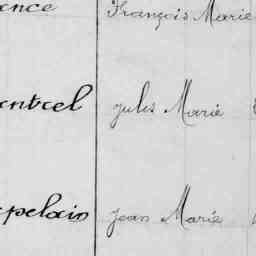 ence François Marie
entrel Jules Marie
pelain Jean Marie